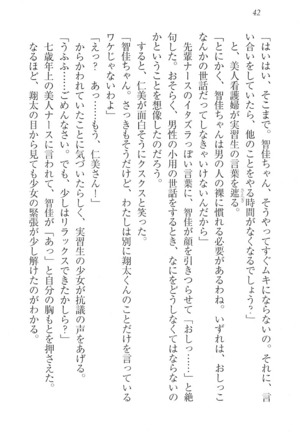 42
「はいはい、そこまで。智佳ちゃん、そうやってすぐムキにならないの。それに、言
い合いをしていたら、他のことをやる時間がなくなるでしょう？」
と、美人看護婦が実習生の言葉を遮る。
「とにかく、智佳ちゃんは男の人の裸に慣れる必要があるわね。いずれは、おしっこ
なんかの世話だってしなきゃいけないんだから」
先輩ナースのイタズラっぽい言葉に、智佳が顔を引きつらせて「おしっ……」と絶
句した。おそらく、男性の小用の世話をするとき、なにをどうしなくてはならないの
かということを想像したのだろう。
すると、仁美が面白そうにクスクスと笑った。
「智佳ちゃん。さっきもそうだけど、わたしは別に翔太くんのことだけを言っている
ワケじゃないわよ」
「えっ？　あっ……もう、仁美さん！」
からかわれていたことに気づいたらしく、実習生の少女が抗議の声をあげる。
「うふふ……ごめんなさい。でも、少しはリラックスできたかしら？」
七歳年上の美人ナースに言われて、智佳が「あっ」と自分の胸もとを押さえた。
なるほど、翔太の目から見ても少女の緊張が少し解けたのがわかる。